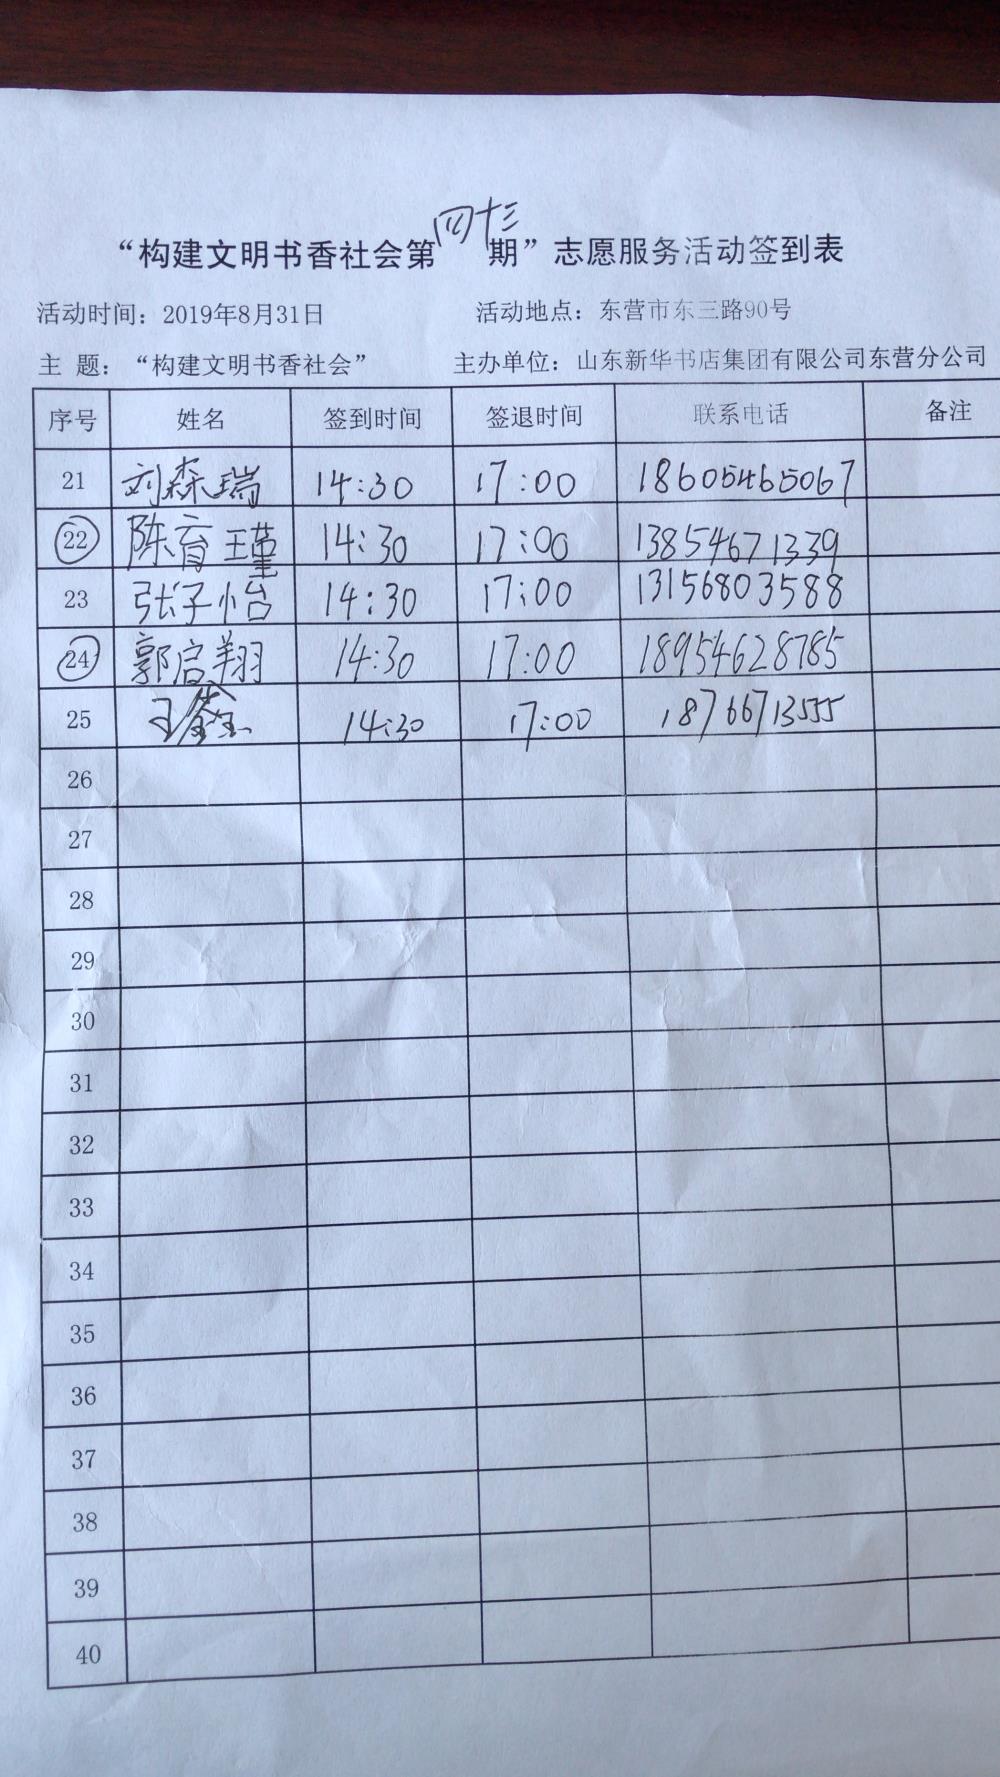 “构建文明书香社会第四十三期”志愿服务活动签到表
活动时间：2019年8月31日 活动地点：东营市东三路90号
主 题：“构建文明书香社会” 主办单位：山东新华书店集团有限公司东营分公司
序号 姓名 签到时间 签退时间 联系电话 备注
21 刘森瑞 14:30 17:00 18605465067
22 陈育瑾 14:30 17:00 13854671339
23 张子怡 14:30 17:00 13156803588
24 郭启翔 14:30 17:00 18954628785
25 14:30 17:00 18766713555
26
27
28
29
30
31
32
33
34
35
36
37
38
39
40